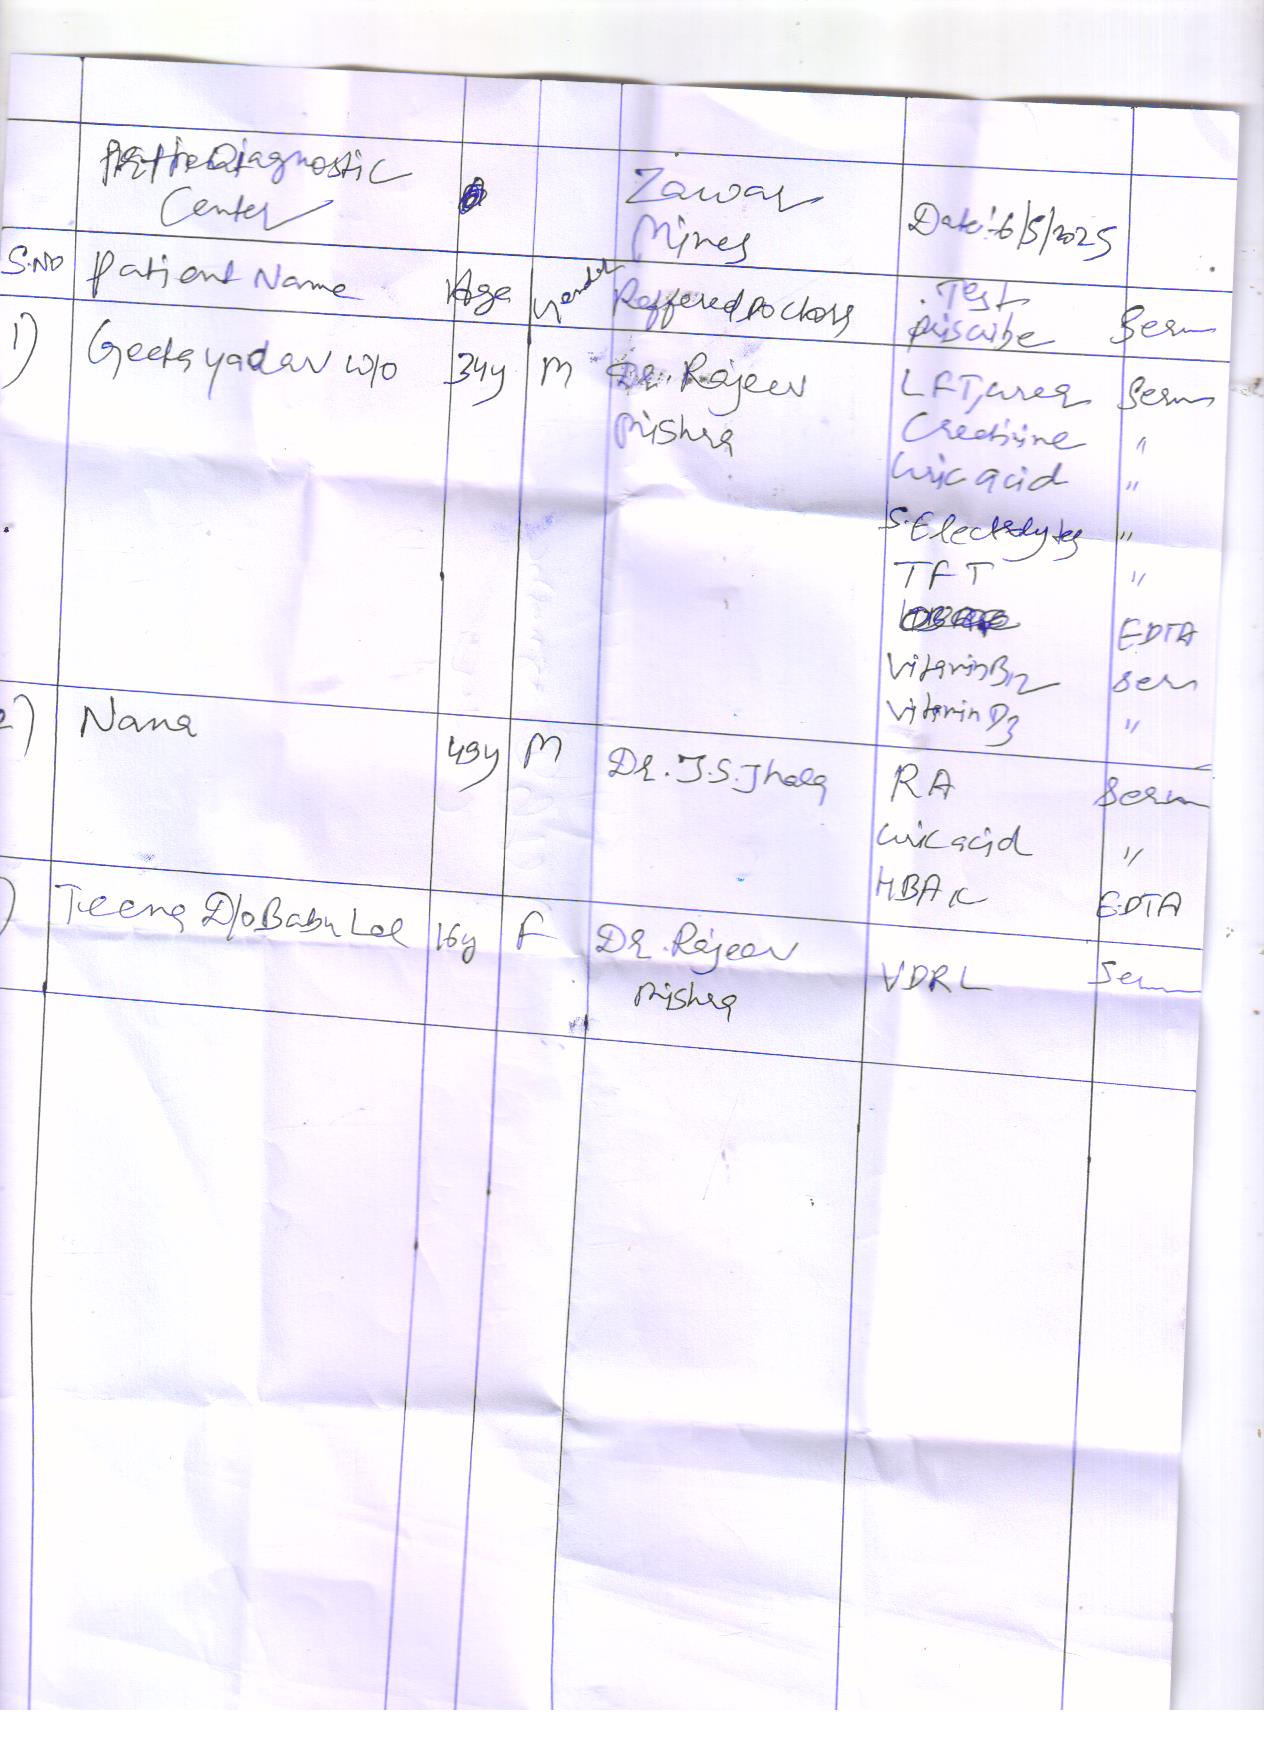 Diagnostic
Center
Zawar
Mines
Date:-6/5/2025
S.NO Patient Name Age Gender Reffered Doctors Test
priscribe Serm
1) Geeta yadav w/o 34y M Dr. Rajeev
Mishra
LFT, urea Serm
Creatinine "
Uric acid "
S. Electrolytes "
TFT "
EDTA
Vitamin B12 Serm
Vitamin D3 "
2) Nana 49y M Dr. J.S. Jhala
RA Serm
Uric acid "
HBA1c EDTA
) Teena D/o Babu Lal 16y F Dr. Rajeev
Mishra
VDRL Serm